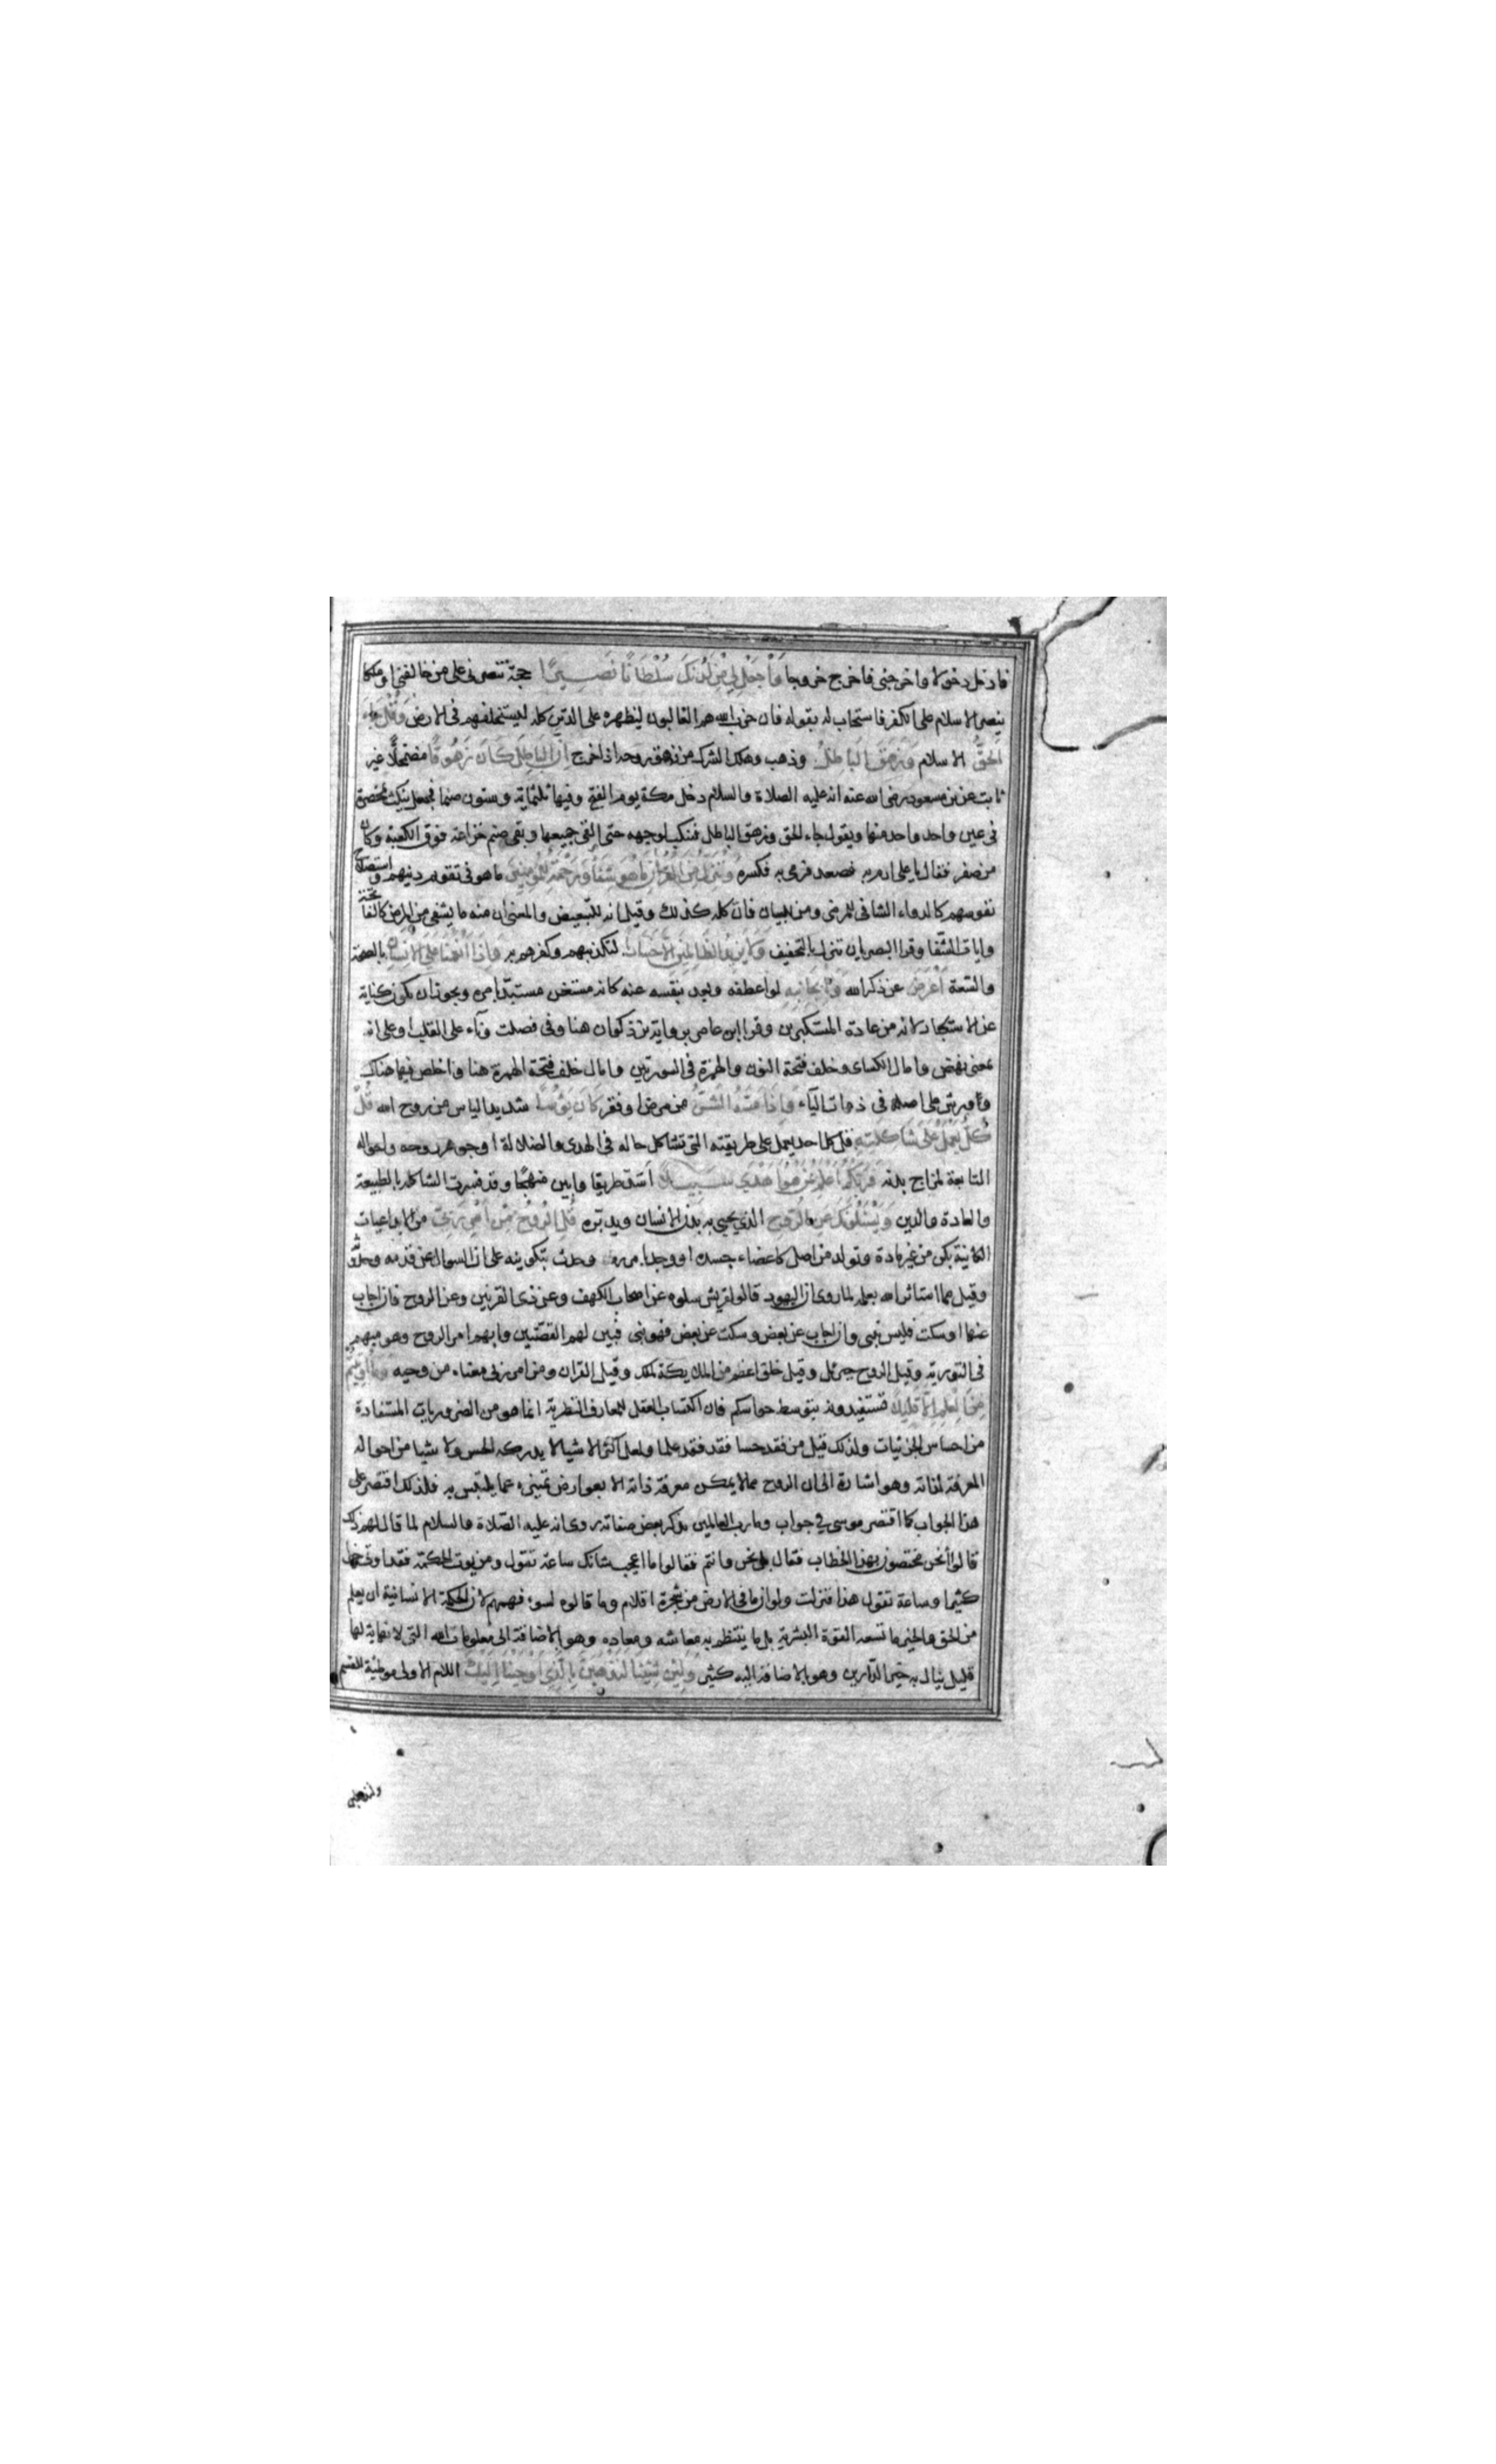 فادخل دخولا واخرجنى فاخرج خروجا وَاجْعَلْ لِي مِنْ لَدُنْكَ سُلْطَانًا نَصِيرًا حجة تنصرنى على من خالفنى او ملكا
ينصر الاسلام على الكفر فاستجاب له بقوله فان حزب الله هم الغالبون ليظهره على الدين كله ليستخلفنهم فى الارض وَقُلْ جَاءَ
الْحَقُّ الاسلام وَزَهَقَ الْبَاطِلُ وذهب وهلك الشرك من زهق روحه اذا خرج اِنَّ الْبَاطِلَ كَانَ زَهُوقًا مضمحلًا غير
ثابت عن بن مسعود رضى الله عنه انه عليه الصلاة والسلام دخل مكة يوم الفتح وفيها ثلثمائة وستون صنما فجعل ينكت بمخصرته
فى عين واحد واحد منها ويقول جاء الحق وزهق الباطل فينكب لوجهه حتى القى جميعها وبقى صنم خزاعة فوق الكعبة وكان
من صفر فقال يا على ارم به فصعد فرمى به فكسره وَنُنَزِّلُ مِنَ الْقُرْآنِ مَا هُوَ شِفَاءٌ وَرَحْمَةٌ لِلْمُؤْمِنِينَ ما هو فى تقويم دينهم واستصلاح
نفوسهم كالدواء الشافى للمرضى ومن للبيان فان كله كذلك وقيل انه للتبعيض والمعنى ان منه ما يشفى من المرض كالفاتحة
وايات الشفا وقرا البصريان ننزل بالتخفيف وَلَا يَزِيدُ الظَّالِمِينَ اِلَّا خَسَارًا لتكذيبهم وكفرهم به وَاِذَا اَنْعَمْنَا عَلَى الْاِنْسَانِ بالصحة
والسعة اَعْرَضَ عن ذكر الله وَنَا بِجَانِبِهِ لوا عطفه وبعد بنفسه عنه كانه مستغن مستبد بامره ويجوز ان يكون كناية
عن الاستكبار لانه من عادة المستكبرين وقرا ابن عامر برواية بن ذكوان هنا وفى فصلت وناء على القلب او على انه
بمعنى نهض وامال الكسائى وخلف فتحة النون والهمزة فى السورتين وامال خلف فتحة الهمزة هنا واخلص فيها هناك
وورش على اصله فى ذوات الياء وَاِذَا مَسَّهُ الشَّرُّ من مرض او فقر كَانَ يَؤُسًا شديد الياس من روح الله قُلْ
كُلٌّ يَعْمَلُ عَلَى شَاكِلَتِهِ قل كل احد يعمل على طريقته التى تشاكل حاله فى الهدى والضلالة او جوهر روحه واحواله
التابعة لمزاج بدنه فَرَبُّكُمْ اَعْلَمُ بِمَنْ هُوَ اَهْدَى سَبِيلًا اسد طريقا وابين منهجًا وقد فسرت الشاكلة بالطبيعة
والعادة والدين وَيَسْئَلُونَكَ عَنِ الرُّوحِ الذى يحيى به بدن الانسان ويدبره قُلِ الرُّوحُ مِنْ اَمْرِ رَبِّي من الابداعيات
الكائنة بكن من غير مادة وتولد من اصل كاعضاء جسده او وجد بامره وحدث بتكوينه على ان السوال عن قدمه وحدوثه
وقيل مما استاثر الله بعلمه لما روى ان اليهود قالوا لقريش سلوه عن اصحاب الكهف وعن ذى القرنين وعن الروح فان اجاب
عنها او سكت فليس بنبى وان اجاب عن بعض وسكت عن بعض فهو نبى فبين لهم القصتين وابهم امر الروح وهو مبهم
فى التورية وقيل الروح جبرئل وقيل خلق اعظم من الملائكة كملك وقيل القران ومن امر ربى معناه من وحيه وَمَا اُوتِيتُمْ
مِنَ الْعِلْمِ اِلَّا قَلِيلًا تستفيدونه بتوسط حواسكم فان اكتساب العقل للمعارف النظرية انما هو من الضروريات المستفادة
من احساس الجزئيات ولذلك قيل من فقد حسا فقد فقد علما ولعل اكثر الاشيا لا يدركه الحس ولا شيا من احواله
المعرفة لذاته وهو اشارة الى ان الروح مما لا يمكن معرفة ذاته الا بعوارض تميزه عما يلتبس به فلذلك اقتصر على
هذا الجواب كما اقتصر موسى فى جواب وما رب العالمين بذكر بعض صفاته روى انه عليه الصلاة والسلام لما قال لهم ذلك
قالوا أنحن مختصون بهذا الخطاب فقال بل نحن وانتم فقالوا ما اعجب شانك ساعة تقول ومن يوت الحكمة فقد اوتى خيرا
كثيرا وساعة تقول هذا فنزلت ولو ان ما فى الارض من شجرة اقلام وما قالوه لسوء فهمهم لان الحكمة الانسانية ان يعلم
من الحق والخير ما تسعه القوة البشرية بل ما ينتظم به معاشه ومعاده وهو بالاضافة الى معلومات الله التى لا نهاية لها
قليل ينال به خير الدارين وهو بالاضافة اليه كثير وَلَئِنْ شِئْنَا لَنَذْهَبَنَّ بِالَّذِي اَوْحَيْنَا اِلَيْكَ اللام الاولى موطئة للقسم
ولنذهبن